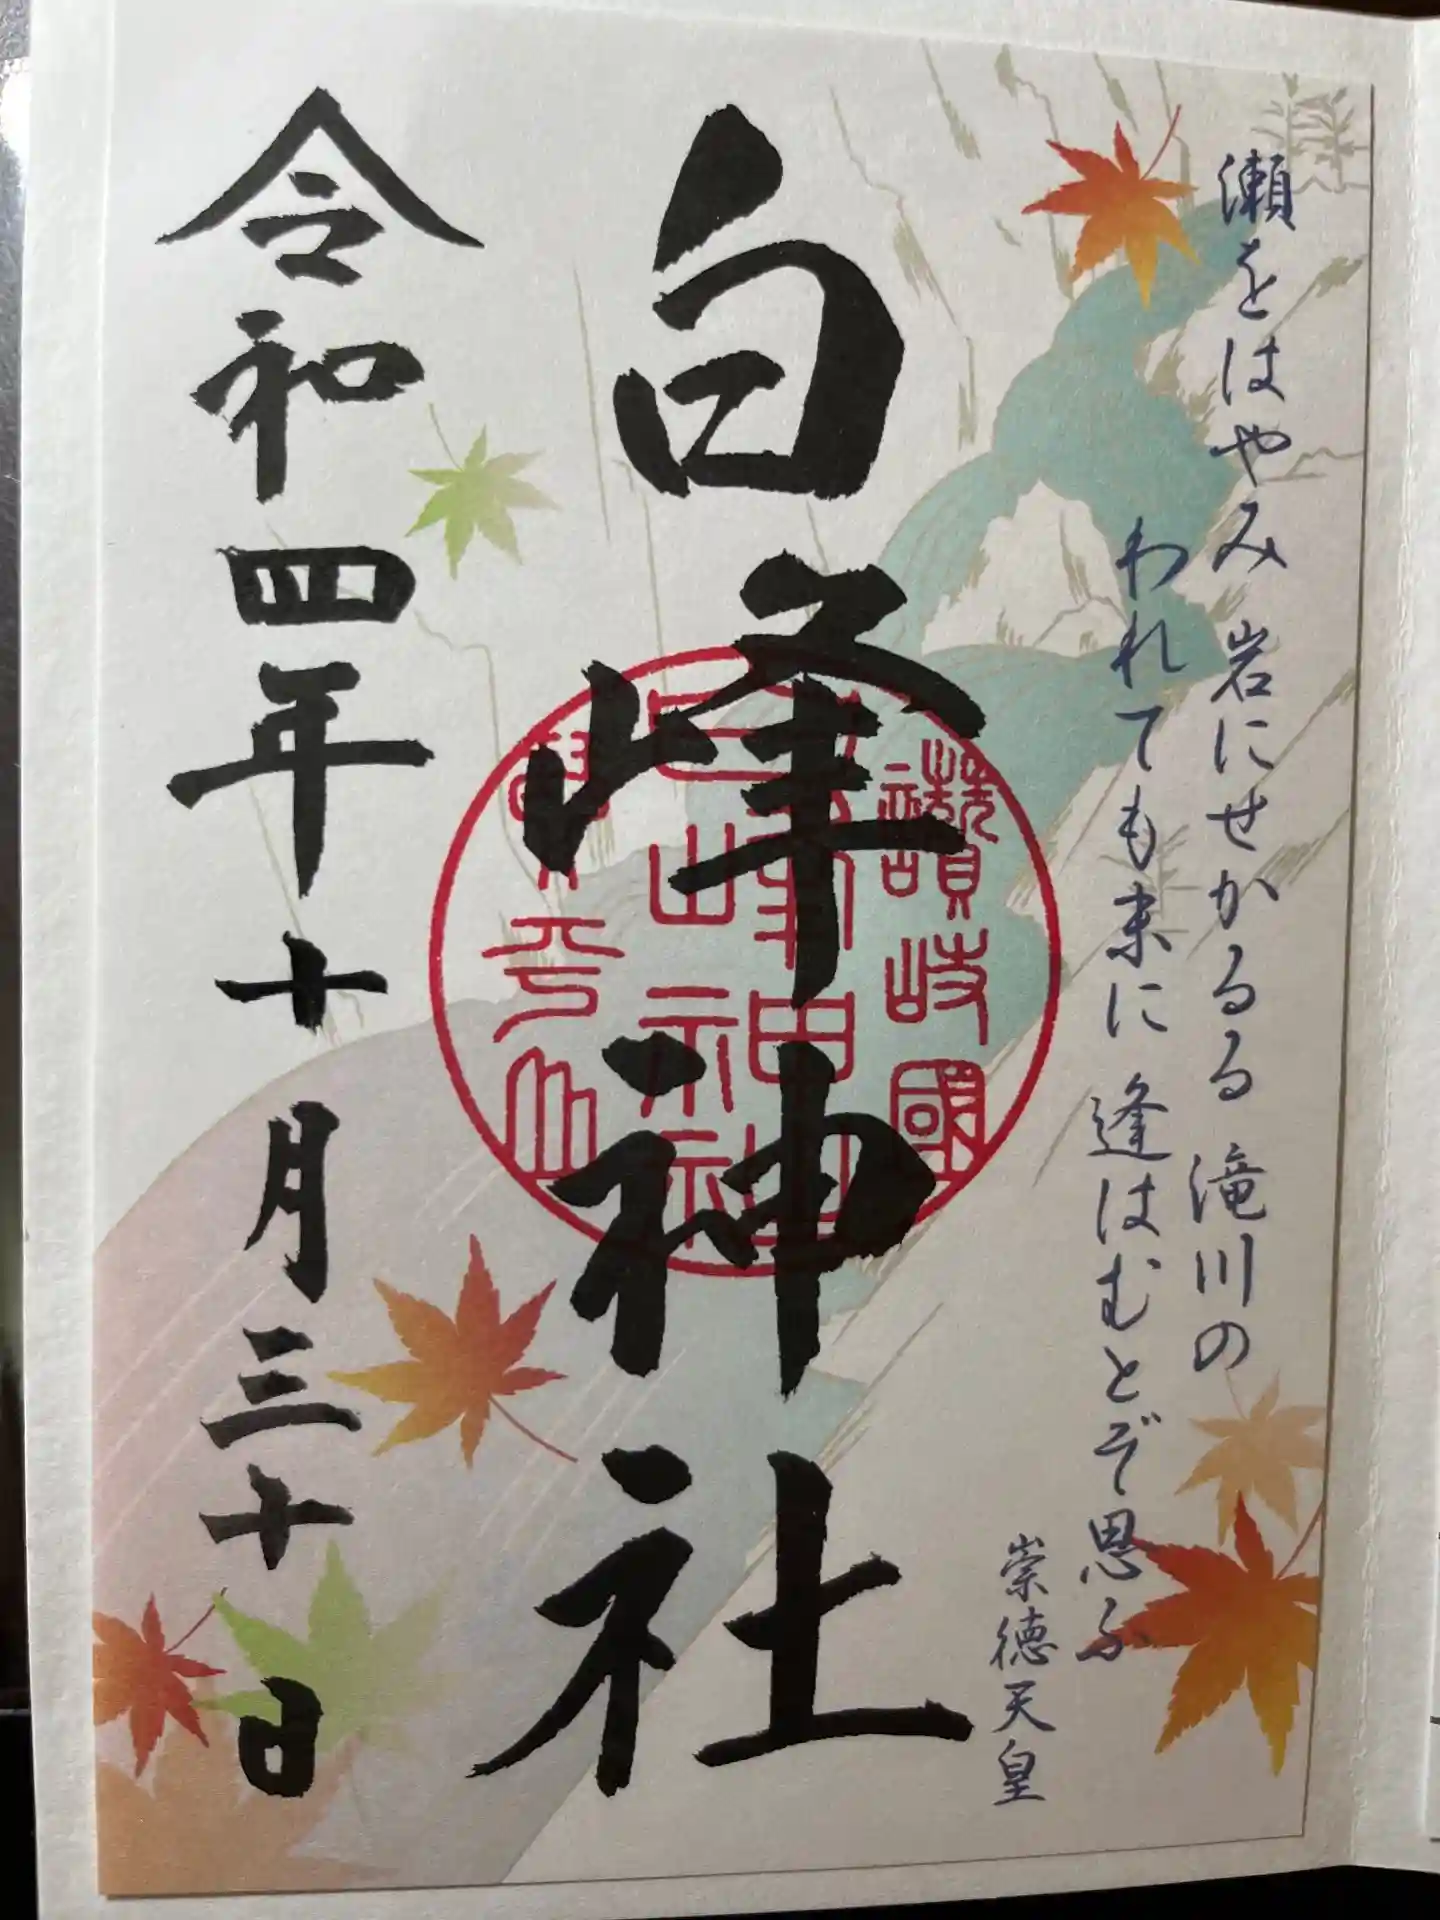 瀬をはやみ 岩にせかるる 滝川の
われても末に 逢はむとぞ思ふ
崇徳天皇
白峰神社
讃岐國
令和四年十月三十日